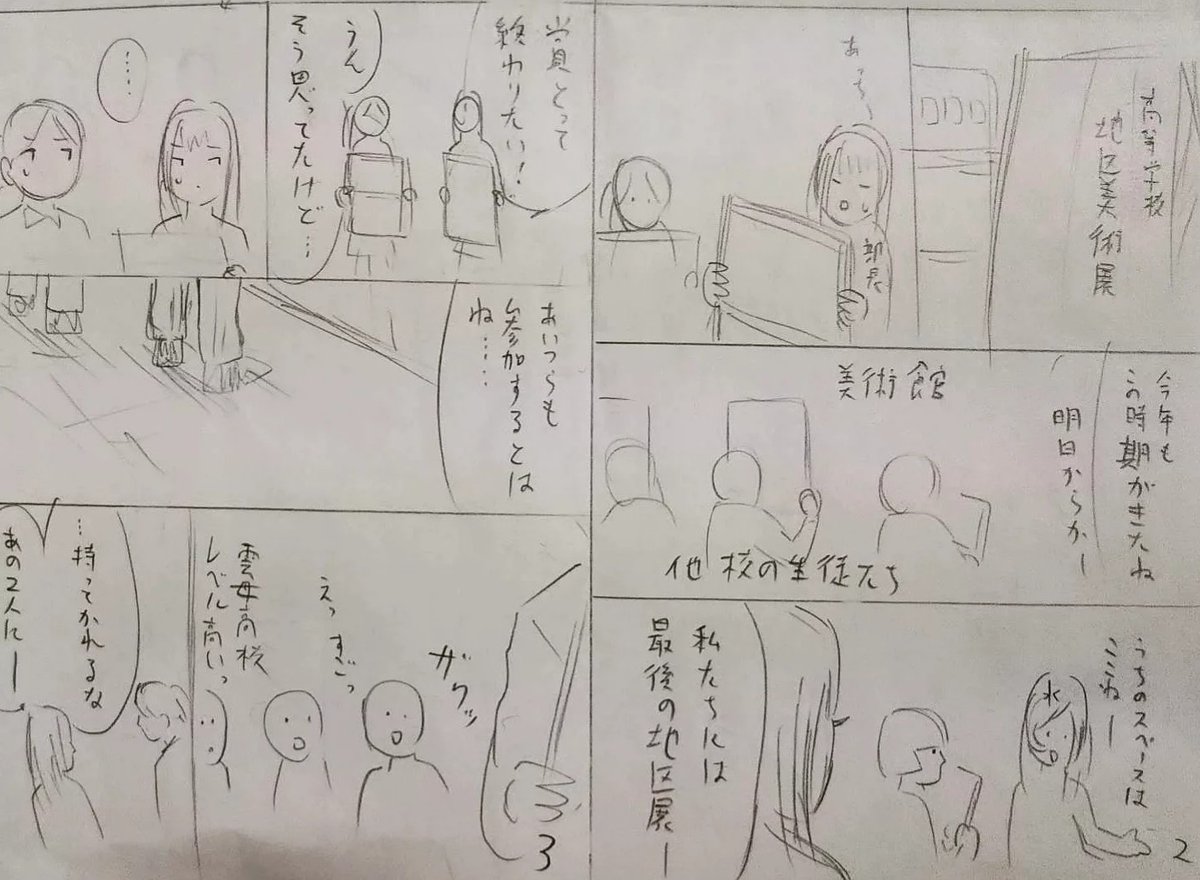 高等学校
地区美術展
あっち
部長
今年も
この時期がきたね
明日からかー
美術館
他校の生徒たち
うちのスペースは
ここねー
水
私たちには
最後の地区展ー
2
賞とって
終わりたい!
うん
そう思ってたけど…
……
あいつらも
参加するとは
ね……
ザワッ
えっ
すごっ
雲母高校
レベル高いっ
…持ってかれるな
あの2人にー
3